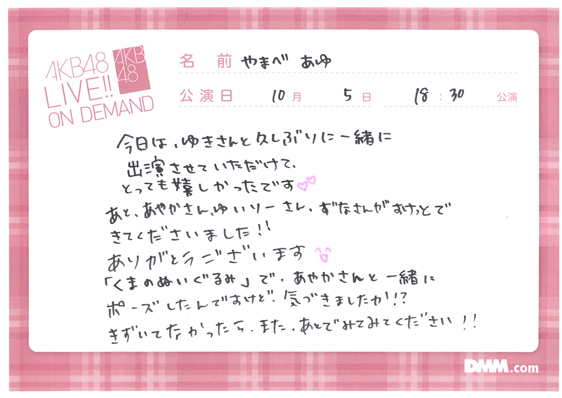 AKB48
LIVE!!
ON DEMAND
AKB
48
名前 やまべ あゆ
公演日 10月 5日 18:30 公演
今日は、ゆきさんと久しぶりに一緒に
出演させていただけて、
とっても嬉しかったです
あと、あやかさん、ゆいりーさん、ずなさんがおけっとで
きてくださいました!!
ありがとうございます
「くまのぬいぐるみ」で、あやかさんと一緒に
ポーズしたんですけど、気づきましたか!?
きずいてなかったら、また、あとでみてみてください!!
DMM.com